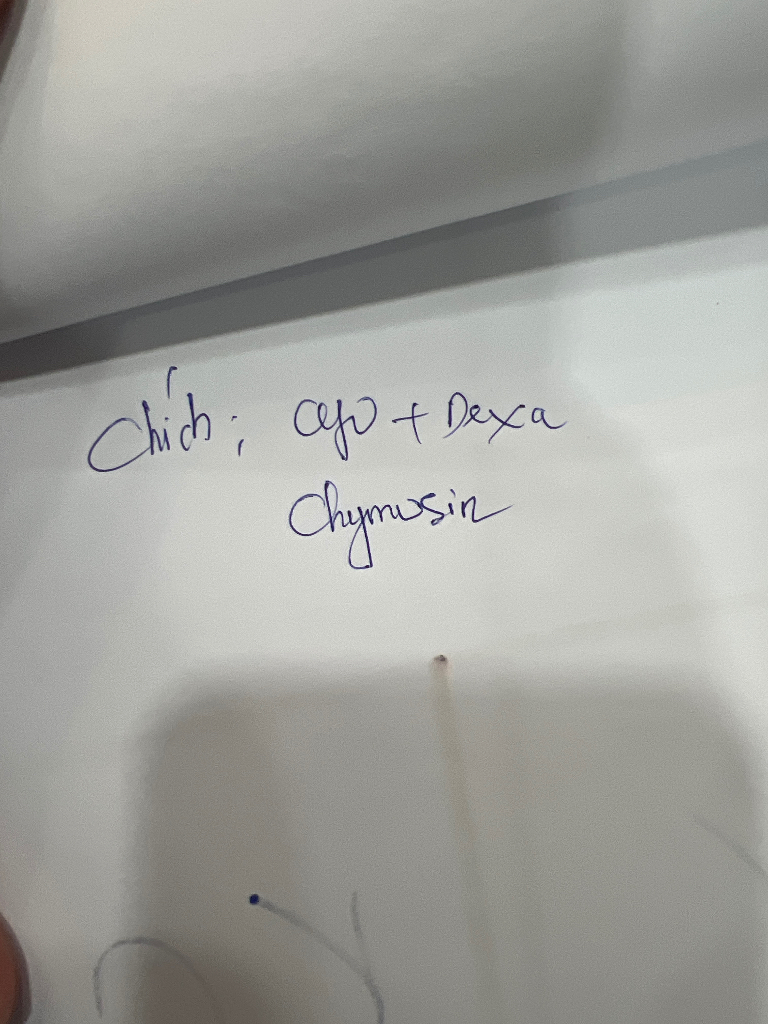 Chích: Cefo + Dexa
Chymosin